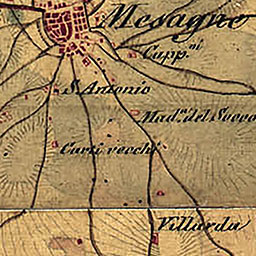 Mesagne
Capp.ni
S. Antonio
Mad.a del Socco
Carti vecchi
Villarda